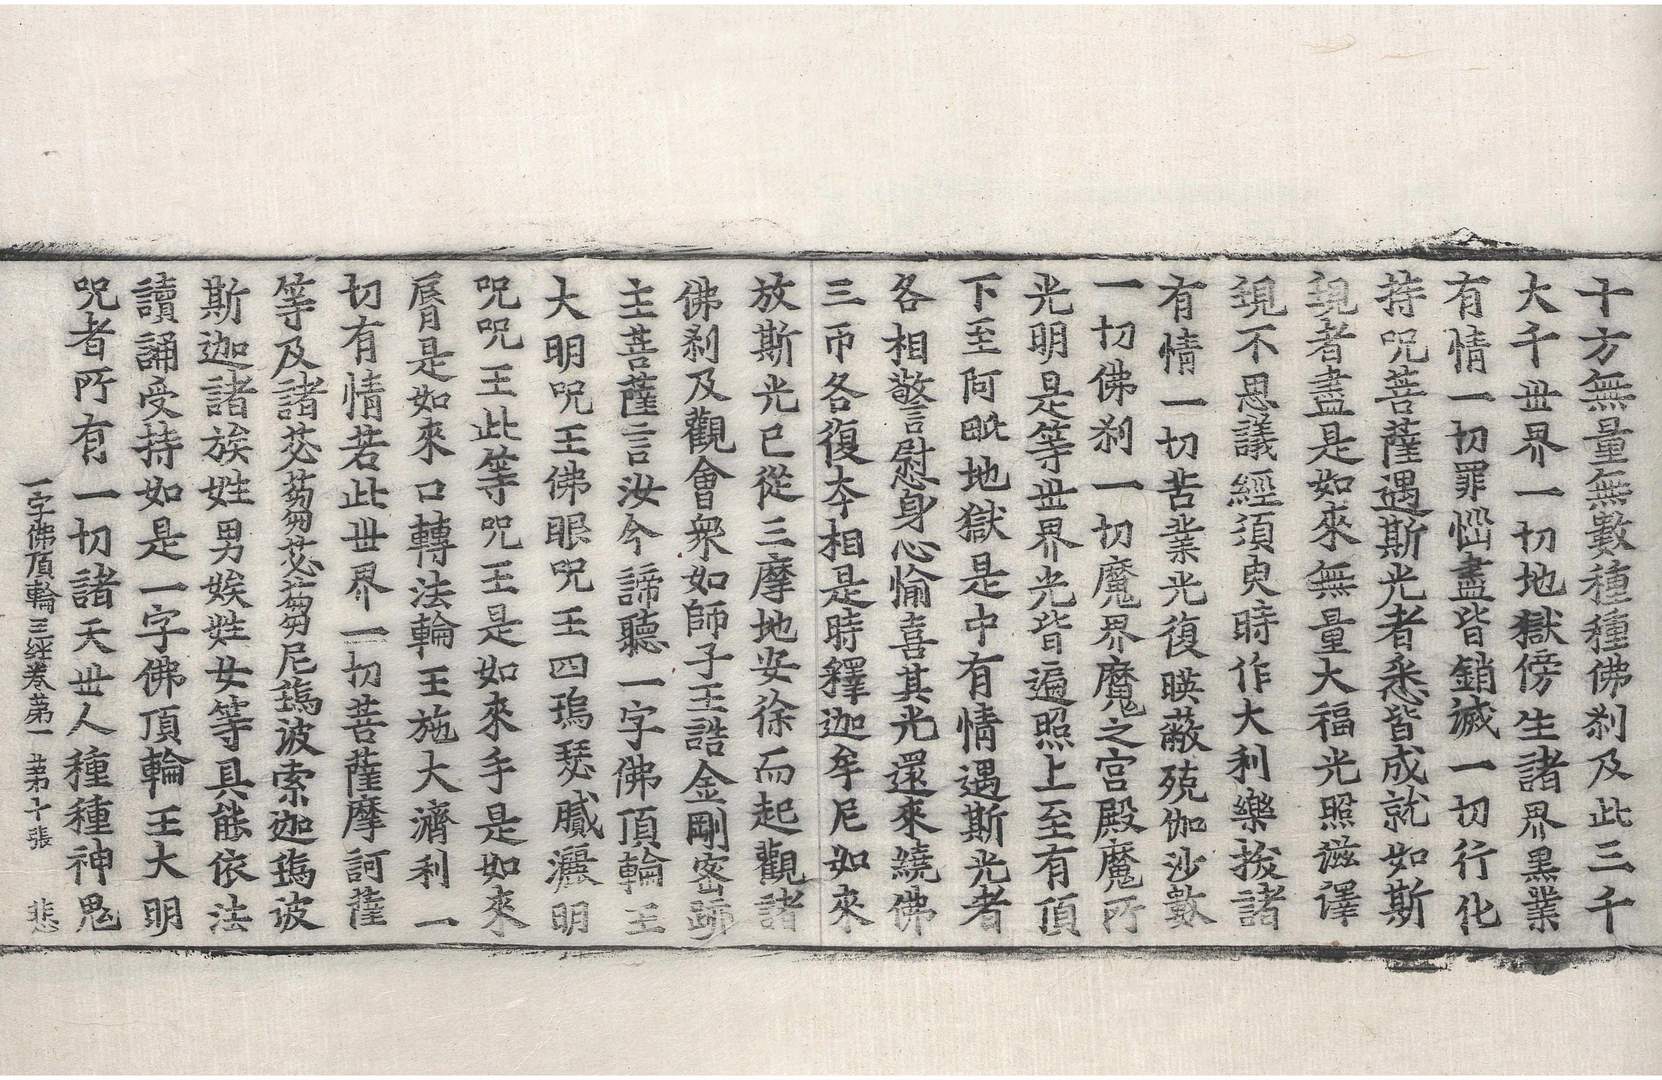 十方無量無數種種佛刹及此三千
大千世界一切地獄傍生諸界黑業
有情一切罪惱盡皆銷滅一切行化
持呪菩薩遇斯光者悉皆成就如斯
現者盡是如來無量大福光照滋澤
現不思議經須臾時作大利樂拔諸
有情一切苦業光復暎蔽殑伽沙數
一切佛刹一切魔界魔之宫殿魔所
光明是等世界光皆遍照上至有頂
下至阿毗地獄是中有情遇斯光者
各相敬言慰身心愉喜其光還來繞佛
三帀各復夲相是時釋迦牟尼如來
放斯光已從三摩地安徐而起觀諸
佛刹及觀會衆如師子王誥金剛密跡
主菩薩言汝今諦聽一字佛頂輪王
大明呪王佛眼呪王四瑦瑟膩灑明
呪呪王此等呪王是如來手是如來
脣是如來口轉法輪王施大濟利一
切有情若此世界一切菩薩摩訶薩
等及諸苾蒭苾蒭尼瑦波索迦瑦波
斯迦諸族姓男族姓女等具能依法
讀誦受持如是一字佛頂輪王大明
呪者所有一切諸天世人種種神鬼
一字佛頂輪王經卷第一 第十張 悲